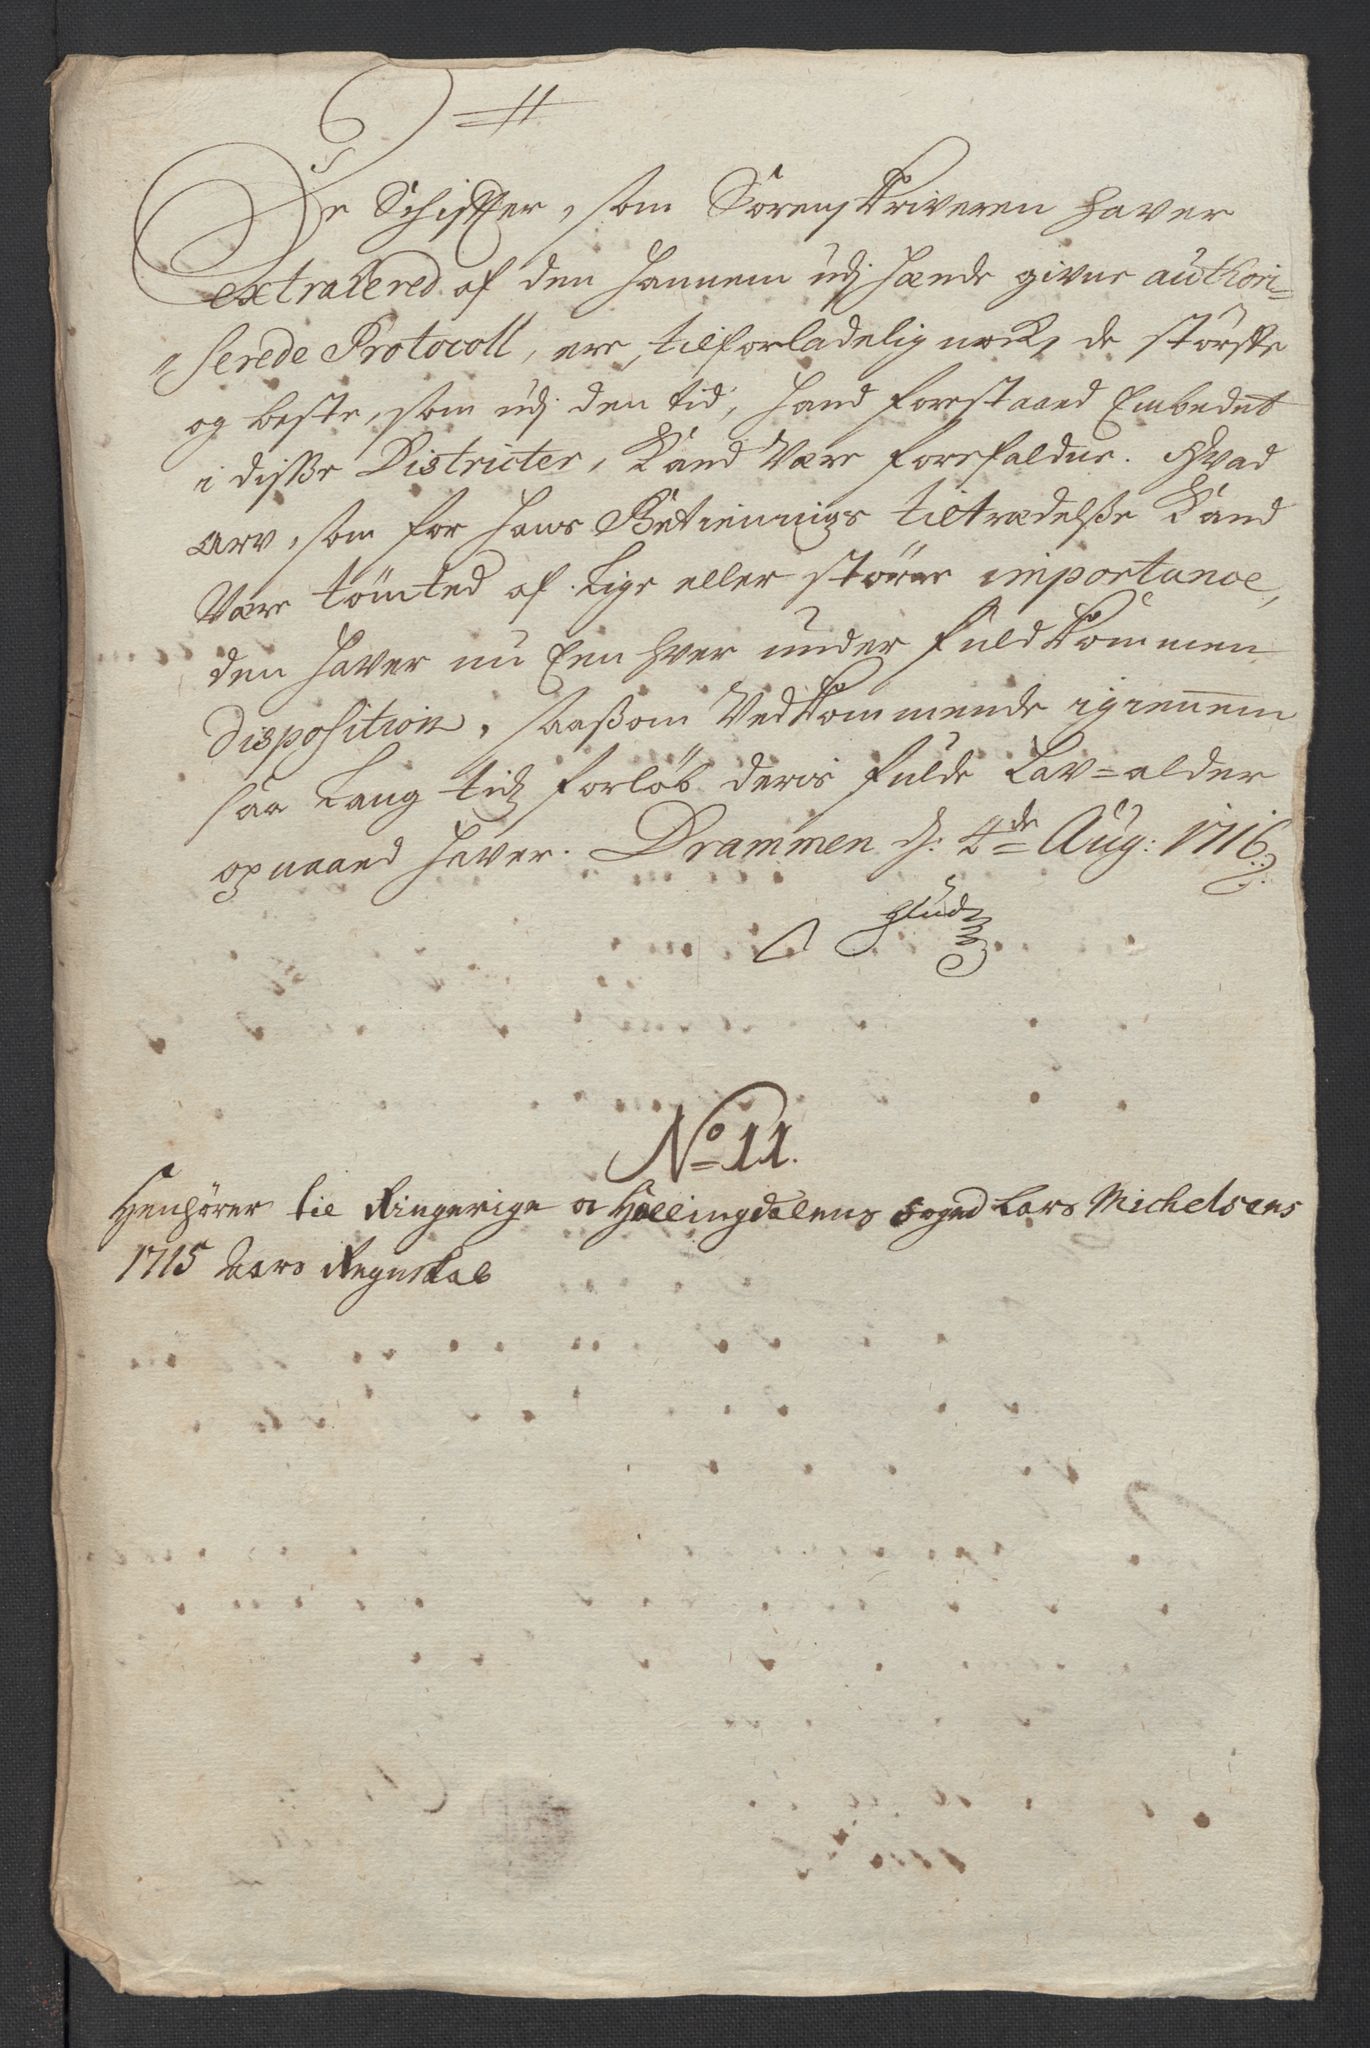 De Schifter, som Sorenskriveren haver
extrahered af den hannem udj hænde givne authori=
serede Protocoll, ere tilforladelig nock, de störste
og beste, som udj den tid, hand forestaaed Embedet
i disse Districter, kand være forefaldne. Hvad
arv, som for hans Betiennings tiltrædelse kand
være tömted af lige eller större importance,
den haver nu Een hver under fuldkommen
disposition, saasom Vedkommende igiennem
saa lang tidz forløb deris fulde Lav=alder
opnaaed haver. Drammen d: 4de Aug: 1716
No 11.
Henhörer til Ringerige oc Hallingdalens foged Lars Michelsens
1715 Aars Regnskab